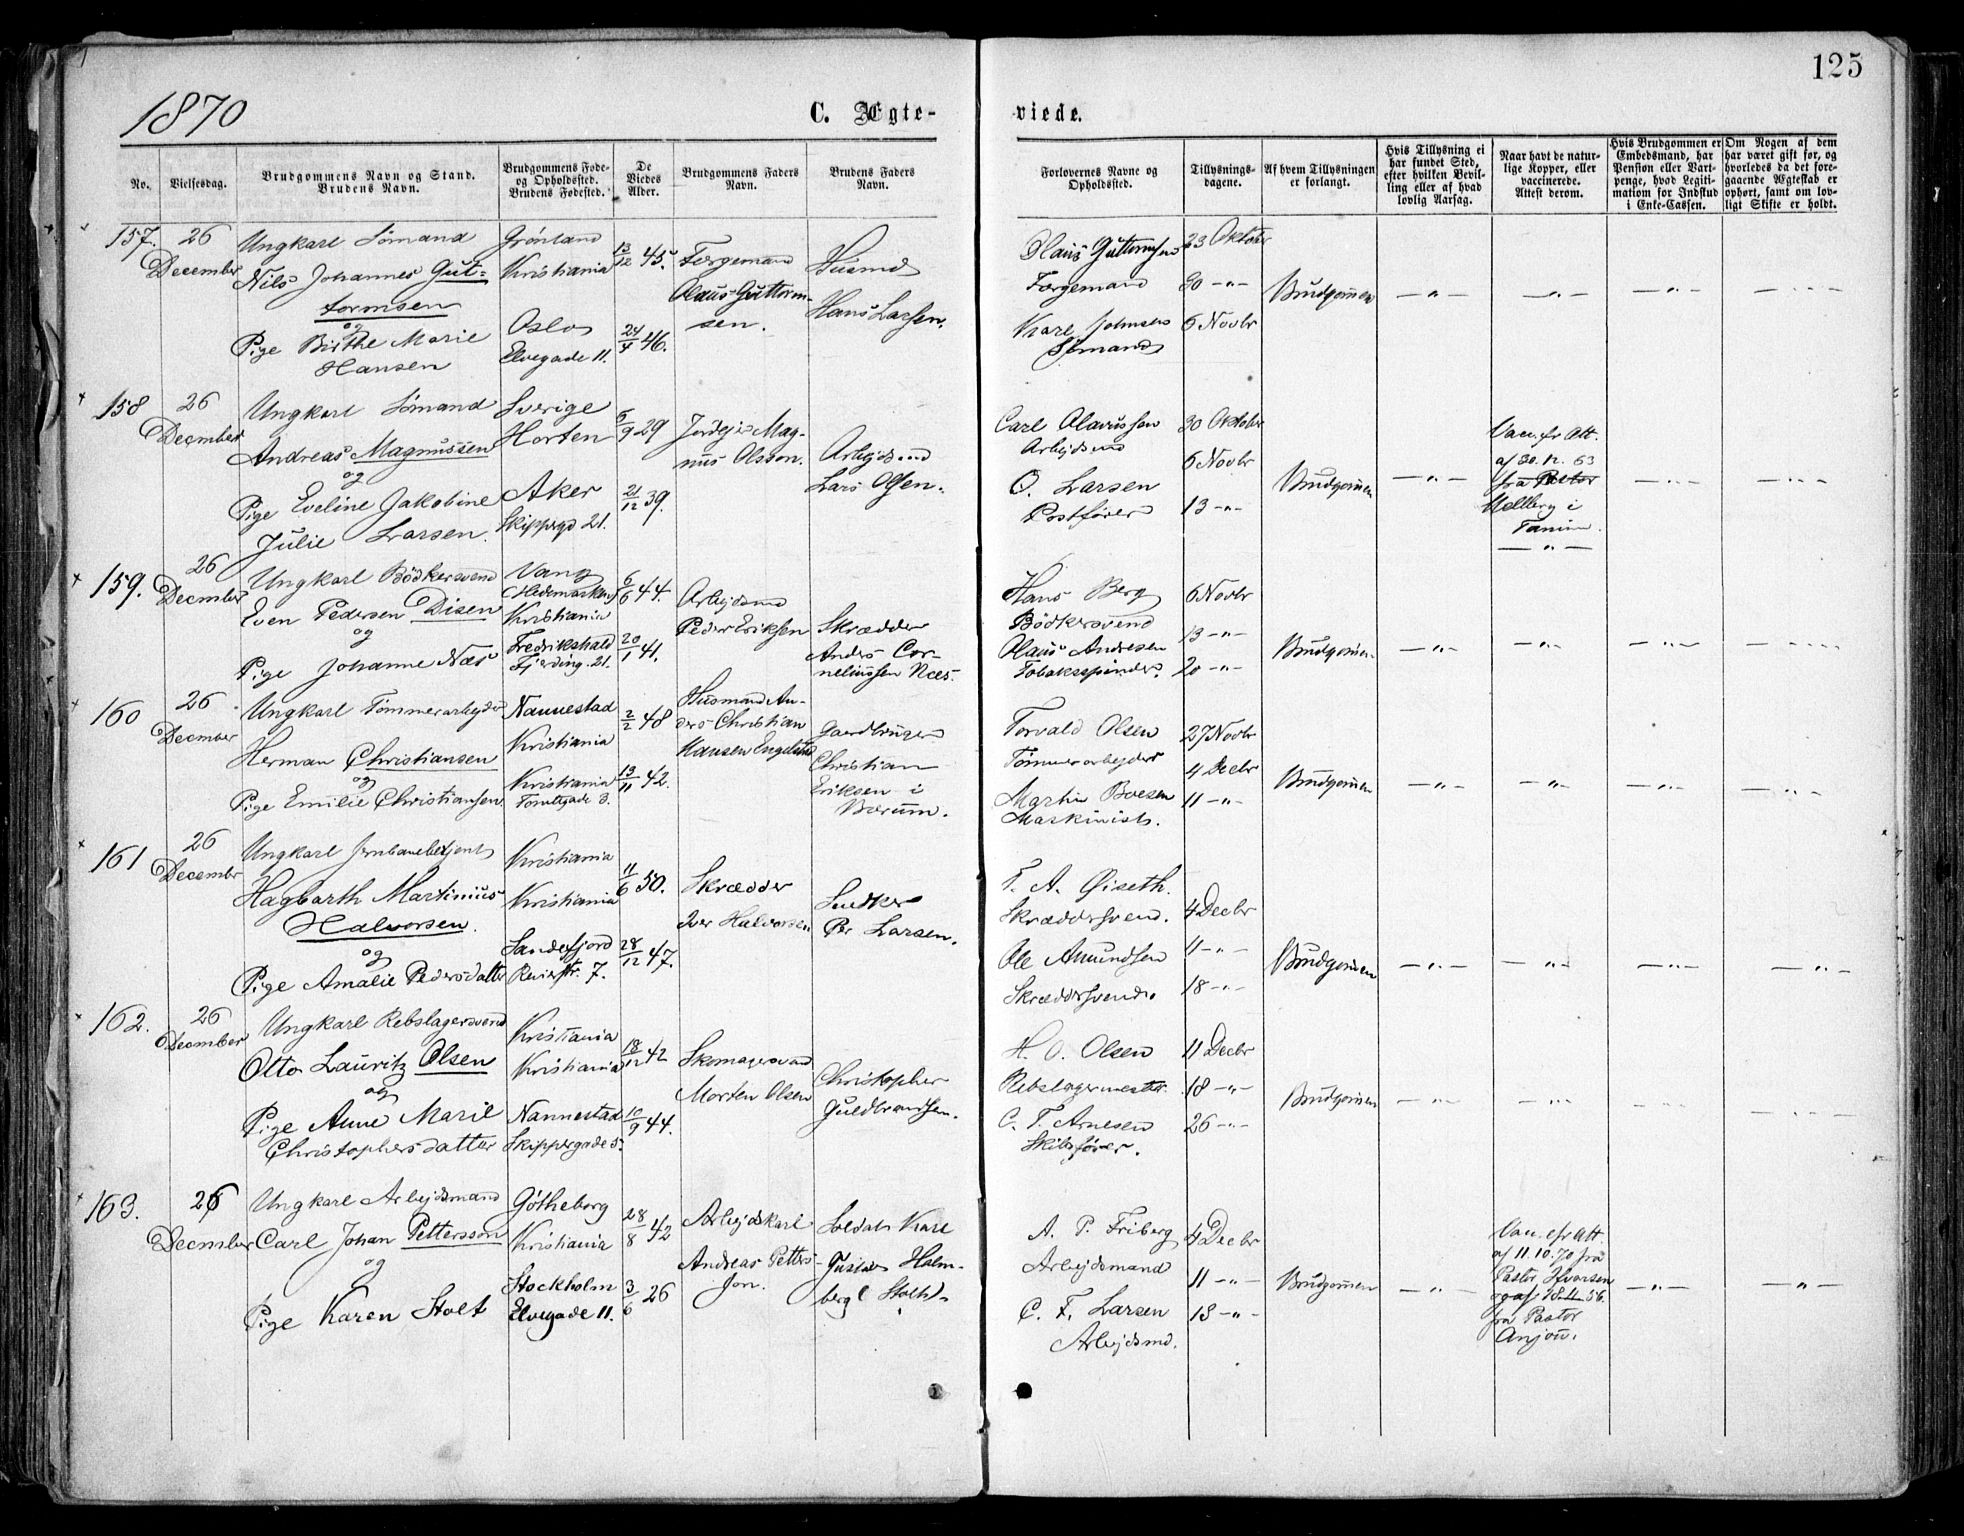 125
1870
C. Ægte-
viede.
No.
Vielsesdag.
Brudgommens Navn og Stand.
Brudens Navn.
Brudgommens Føde-
og Opholdssted.
Brudens Fødested.
De
Viedes
Alder.
Brudgommens Faders
Navn.
Brudens Faders
Navn.
Forlovernes Navne og
Opholdssted.
Tillysnings-
dagene.
Af hvem Tillysningen
er forlangt.
Hvis Tillysning ei
har fundet Sted,
efter hvilken Bevil-
ling eller af hvad
lovlig Aarsag.
Naar havt de natur-
lige Kopper, eller
vaccinerede.
Attest derom.
Hvis Brudgommen er
Embedsmand, har
Pension eller Vart-
penge, hvod Legiti-
mation for Indskud
i Enke-Cassen.
Om Nogen af dem
har været gift før, og
hvorledes da det fore-
gaaende Ægteskab er
ophørt, samt om lov-
ligt Skifte er holdt.
157.
26
December
Ungkarl Sömand
Nils Johannes Gut-
tormsen
og
Pige Birthe Marie
Hansen
Grönland
Kristiania
Oslo
Elvegade 11.
13/12 45.
24/4 46.
Færgemand
Olaus Guttorm-
sen.
Husmd
Hans Larsen.
Olaus Guttormsen
Færgemand
Karl Johnsen
Sömand
23 Oktober
30 -"-
6 Novbr
Brudgommen
158
26
December
Ungkarl Sömand
Andreas Magnussen
og
Pige Eveline Jakobine
Julie Larsen.
Sverige
Horten
Aker
Skippergd 21.
6/9 29
21/12 39.
Jordejer Mag-
nus Olsson.
Arbejdsmd
Lars Olsen.
Carl Olavussen
Arbejdsmd
O. Larsen
Postförer
30 Oktober
6 Novbr
13 -"-
Brudgommen
Vac. efr Att.
af 30.12.63
fra Pastor
Mellberg i
Tanum.
159.
26
December
Ungkarl Bödkersvend
Even Pedersen Disen
og
Pige Johanne Næs
Vang
(Hedemarken)
Kristiania
Fredrikshald
Fjerding. 21.
6/6 44.
20/1 41.
Arbejdsmd
Peder Eriksen
Skrædder
Anders Cor-
neliussen Næs.
Hans Berg
Bödkersvend
Olaus Andresen
Tobaksspinder.
6 Novbr
13 -"-
20 -"-
Brudgommen
160
26
December
Ungkarl Tömmerarbejder
Herman Christiansen
og
Pige Emilie Christiansen
Nannestad
Kristiania
Kristiania
Tomtegade 3.
2/2 48
13/11 42.
Husmand An-
ders Christian
Hansen Engelstad
Gaardbruger
Christian
Eriksen i
Bærum.
Torvald Olsen
Tömmerarbejder
Martin Boesen
Maskinist.
27 Novbr
4 Decbr
11 -"-
Brudgommen
161
26
December
Ungkarl Jernbanebetjent
Hagbarth Martinius
Halvorsen.
og
Pige Amalie Pedersdatter
Kristiania
Kristiania
Sandefjord
Revierstr. 7.
11/6 50.
28/12 47.
Skrædder
Iver Halvorsen
Snedker
Per Larsen.
T. A. Øiseth.
Skræddersvend.
Ole Amundsen
Skræddersvend.
4 Decbr
11 -"-
18 -"-
Brudgommen
162.
26
December
Ungkarl Rebslagersvend
Otto Lauritz Olsen
og
Pige Anne Marie
Christophersdatter
Kristiania
Kristiania
Nannestad
Skippergade 5.
18/12 42
10/9 44.
Skomagersvend
Morten Olsen
Christopher
Guldbrandsen.
H. O. Olsen
Rebslagermester.
C. T. Arnesen
Skibsförer.
11 Decbr
18 -"-
26 -"-
Brudgommen
163.
26
December
Ungkarl Arbejdsmand
Carl Johan Pettersson
og
Pige Karen Stolt
Götheborg
Kristiania
Stockholm
Elvegade 11.
28/8 42
3/6 26
Arbejdskarl
Andreas Petters-
son.
Soldat Karl
Gustav Holm-
berg Stolt.
A. P. Friberg
Arbejdsmand
C. F. Larsen
Arbejdsmd.
4 Decbr
11 -"-
18 -"-
Brudgommen
Vac. efr Att.
af 11.10.70 fra
Pastor Ivarsen
og af 18.4.56.
fra Pastor
Anjou.